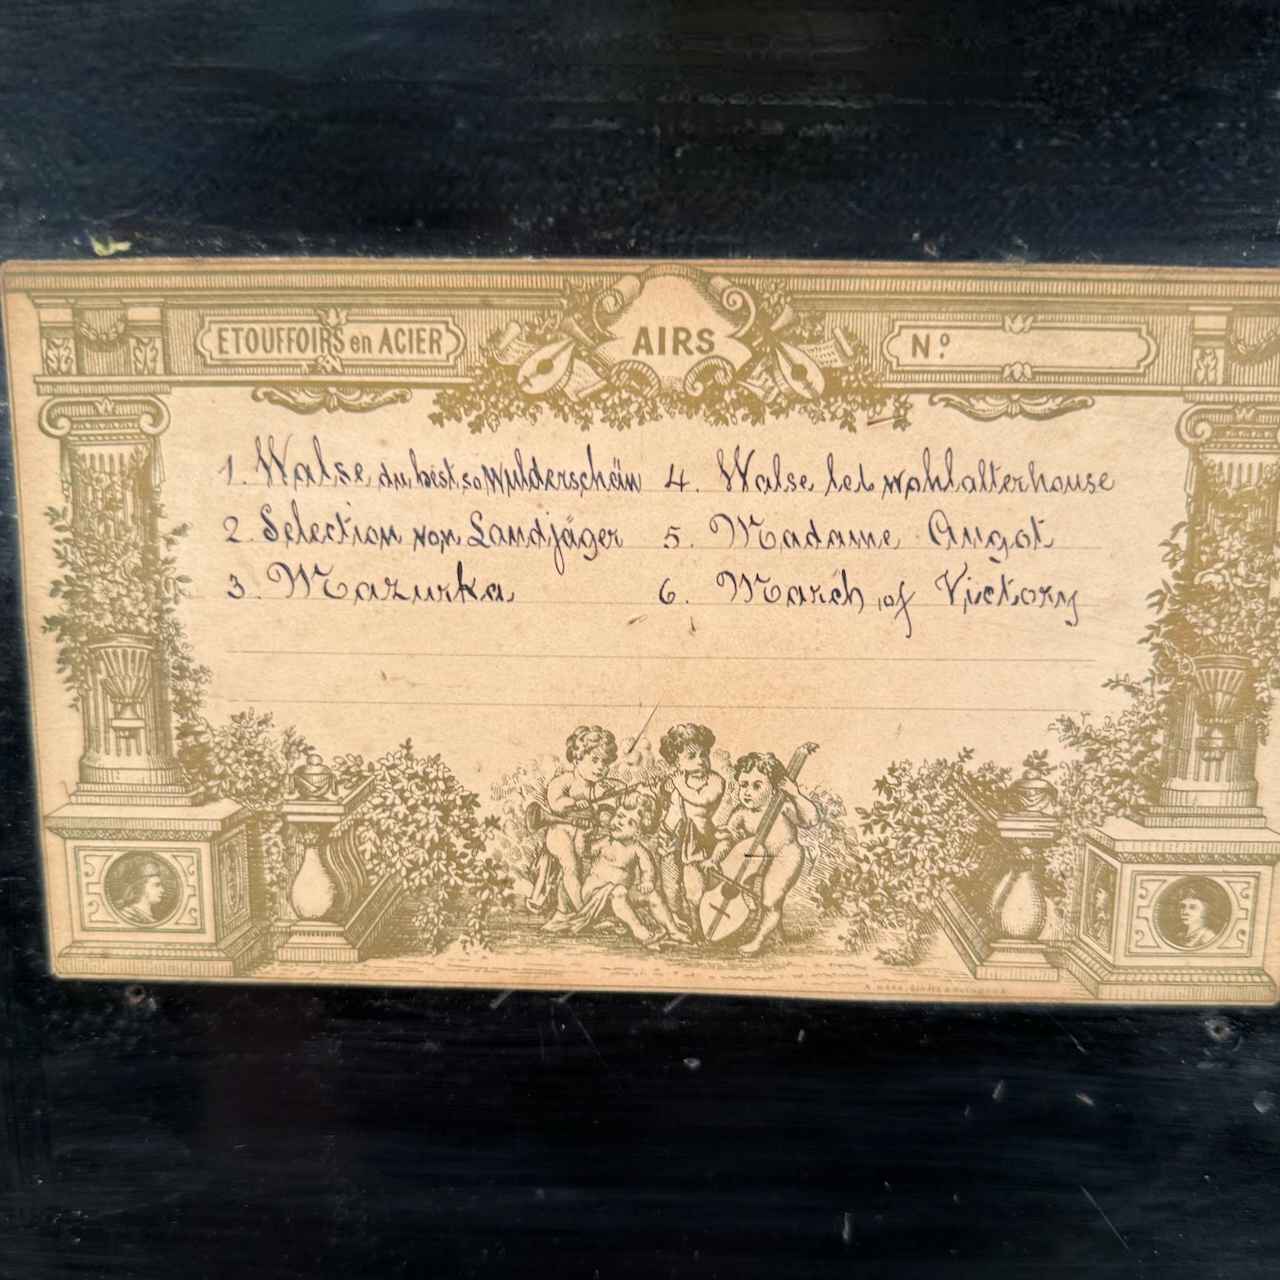 ETOUFFOIRS en ACIER
AIRS
N.º
1. Walse du bist so Wulderschön
2. Selection von Landjäger
3. Mazurka
4. Walse leb wohl alterhouse
5. Madame Angot
6. March of Victory